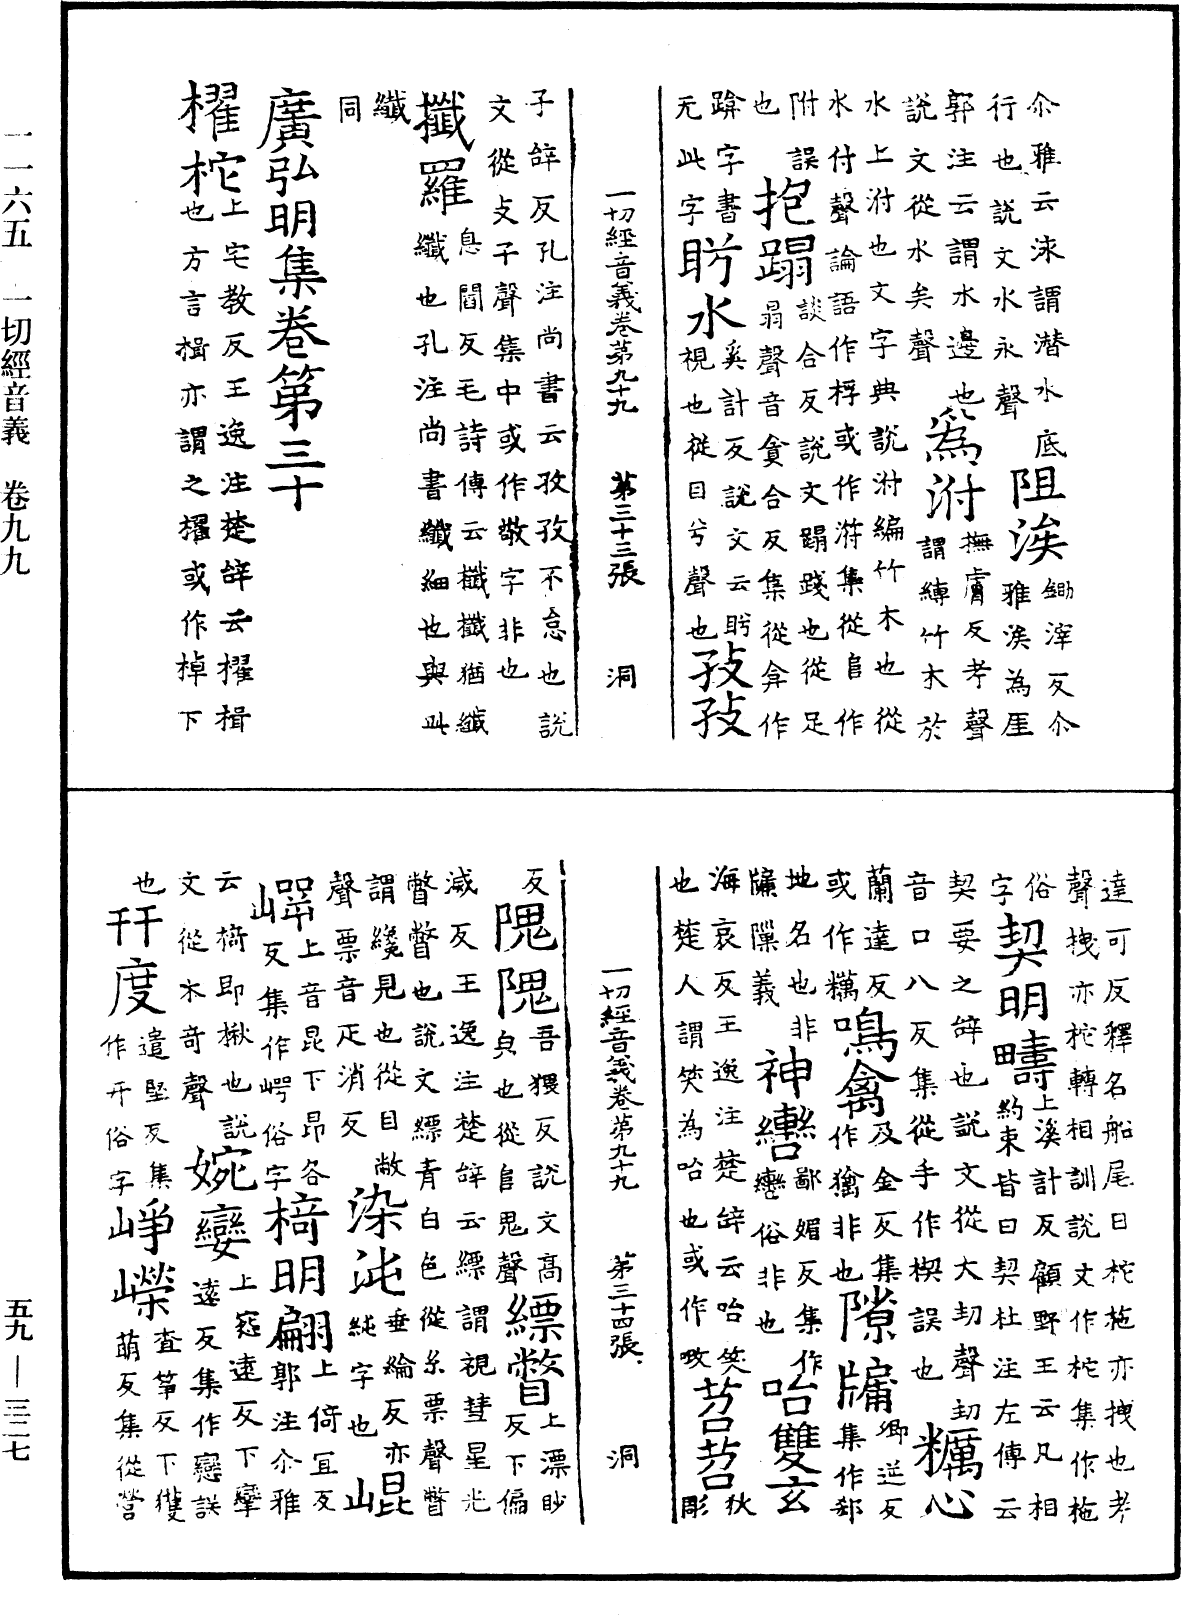 尒雅云泳謂潜水底阻涘鋤滓反尒
行也說文水永聲雅涘為厓
郭注云謂水邊也䈣泭撫膚反考聲
說文從水矣聲謂縛竹木於
水上泭也文字典說泭編竹木也從
水付聲論語作桴或作㳺集從𨸏作
附誤抱蹋談合反說文蹋踐也從足
也𦐇聲音貪合反集從弇作
踰字書盻水奚計反說文云盻
无此字視也從目兮聲也孜孜
一切經音義卷第九十九 第三十三張 洞
子辝反孔注尚書云孜孜不怠也說
文從攴子聲集中或作敬字非也
攕羅息閻反毛詩傳云攕攕猶纖
纖也孔注尚書纖細也與此
纖
同
廣弘明集卷第三十
櫂柁上宅教反王逸注楚辝云櫂楫
也方言楫亦謂之櫂或作棹下
達可反釋名船尾曰柁柂亦拽也考
聲拽亦柁轉相訓說文作柁集作柂
俗字契明疇上溪計反顧野王云凡相
約束皆曰契杜注左傳云
契要之辝也說文從大㓞聲㓞
音口八反集從手作楔誤也糲心
蘭達反鳴禽及金反集隙牖卿逆反
或作糲作𤠩非也集作郄
地名也非神轡鄙媚反集作咍雙玄
牖隟義轡俗非也
海哀反王逸注楚辝云咍笑苕苕狄
也楚人謂笑為咍也或作㕤彫
一切經音義卷第九十九 第三十四張 洞
反隗隗吾猥反說文高縹瞥上漂眇
皃也從𨸏鬼聲反下偏
滅反王逸注楚辝云縹謂視彗星光
瞥瞥也說文縹青白色從糸票聲瞥
謂纔見也從目敝染沌垂綸反亦崐
聲票音疋消反純字也
㟧上音昆下昂各椅明翩上倚冝反
反集作崿俗字郭注尒雅
云椅即楸也說婉孌上怨遠反下孿
文從木奇聲遠反集作戀誤
也幵度遣堅反集崢嶸查箏反下獲
作开俗字萌反集從營
一一六五 一切經音義 卷九九
五九—三二七